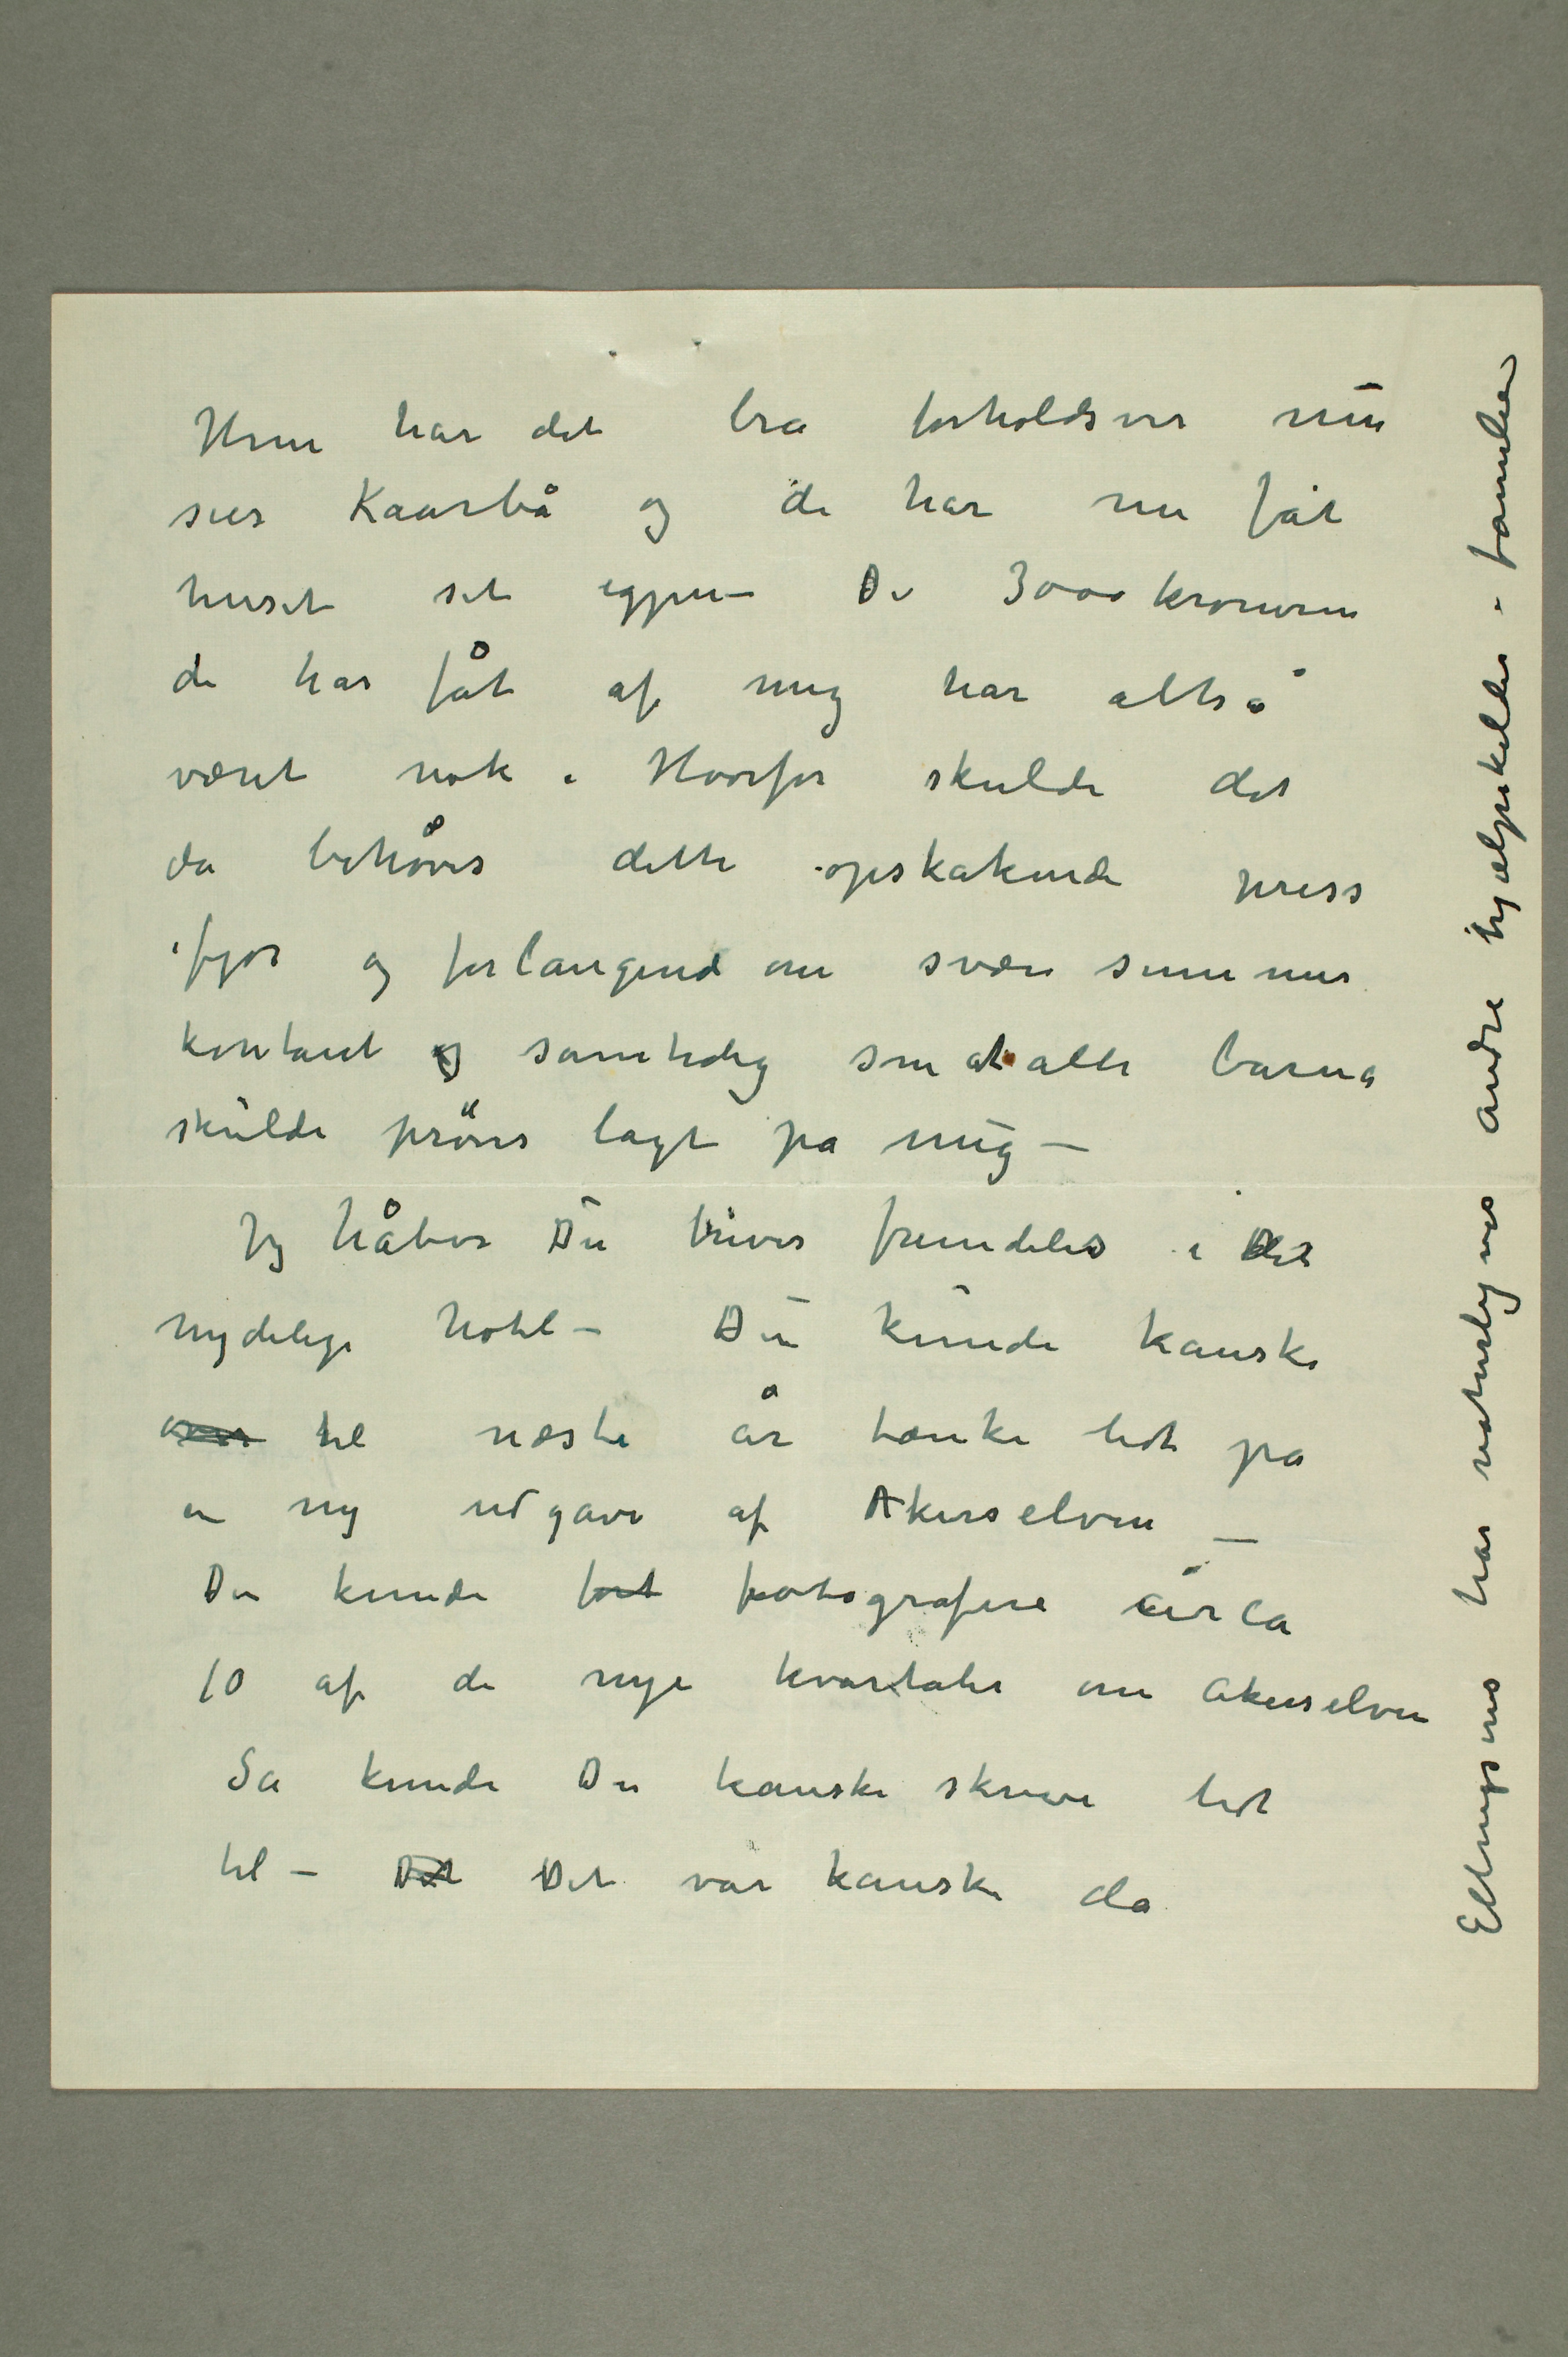 Hun har det bra forholdsvis nu
sies Kaarbø og de har nu fåt
huset sit igjen – De 3000 kronerne
de har fåt af mig har altså
været nok. Hvorfor skulde det
da behøves dette opskakende press
ifjor og forlangende om svære summer
kontant og samtidig som at alle barna
skulde prøves lagt på mig –
Jeg håber Du trives fremdeles i det
nydelige hotel – Du kunde kanske
over til næste år tænke lidt på
en ny udgave af Akerselven –
Du kunde fort fotografere circa
10 af de nye kvartaler om Akerselven
Så kunde Du kanske skrive lidt
til – Det Det var kanske da
Ellingsens har naturligvis andre hjælpekilder i familien